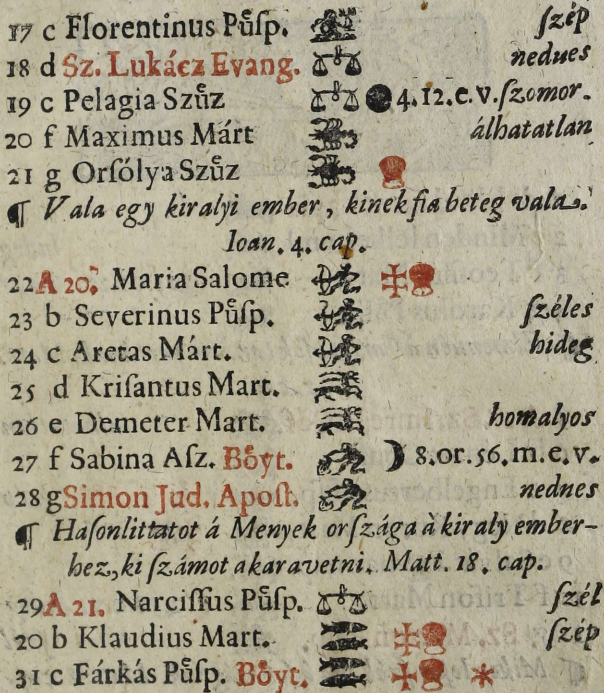 17 c Florentinus Pűſp. ſzép
18 d Sz. Lukácz Evang. nedues
19 c Pelagia Szűz 4. 12. e. v. ſzomor.
20 f Maximus Márt álhatatlan
21 g Orſólya Szűz
¶ Vala egy kiralyi ember, kinek fia beteg vala.
Ioan. 4. cap.
22 A 20. Maria Salome
23 b Severinus Pűſp. ſzéles
24 c Aretas Márt. hideg
25 d Kriſantus Mart.
26 e Demeter Mart. homalyos
27 f Sabina Aſz. Bőyt. 8. or. 56. m. e. v.
28 g Simon Jud. Apoſt. nednes
¶ Haſonlittatot á Menyek orſzága à kiraly ember-
hez, ki ſzámot akara vetni. Matt. 18. cap.
29 A 21. Narciſſus Pűſp. ſzél
20 b Klaudius Mart. ſzép
31 c Fárkás Pűſp. Bőyt. *